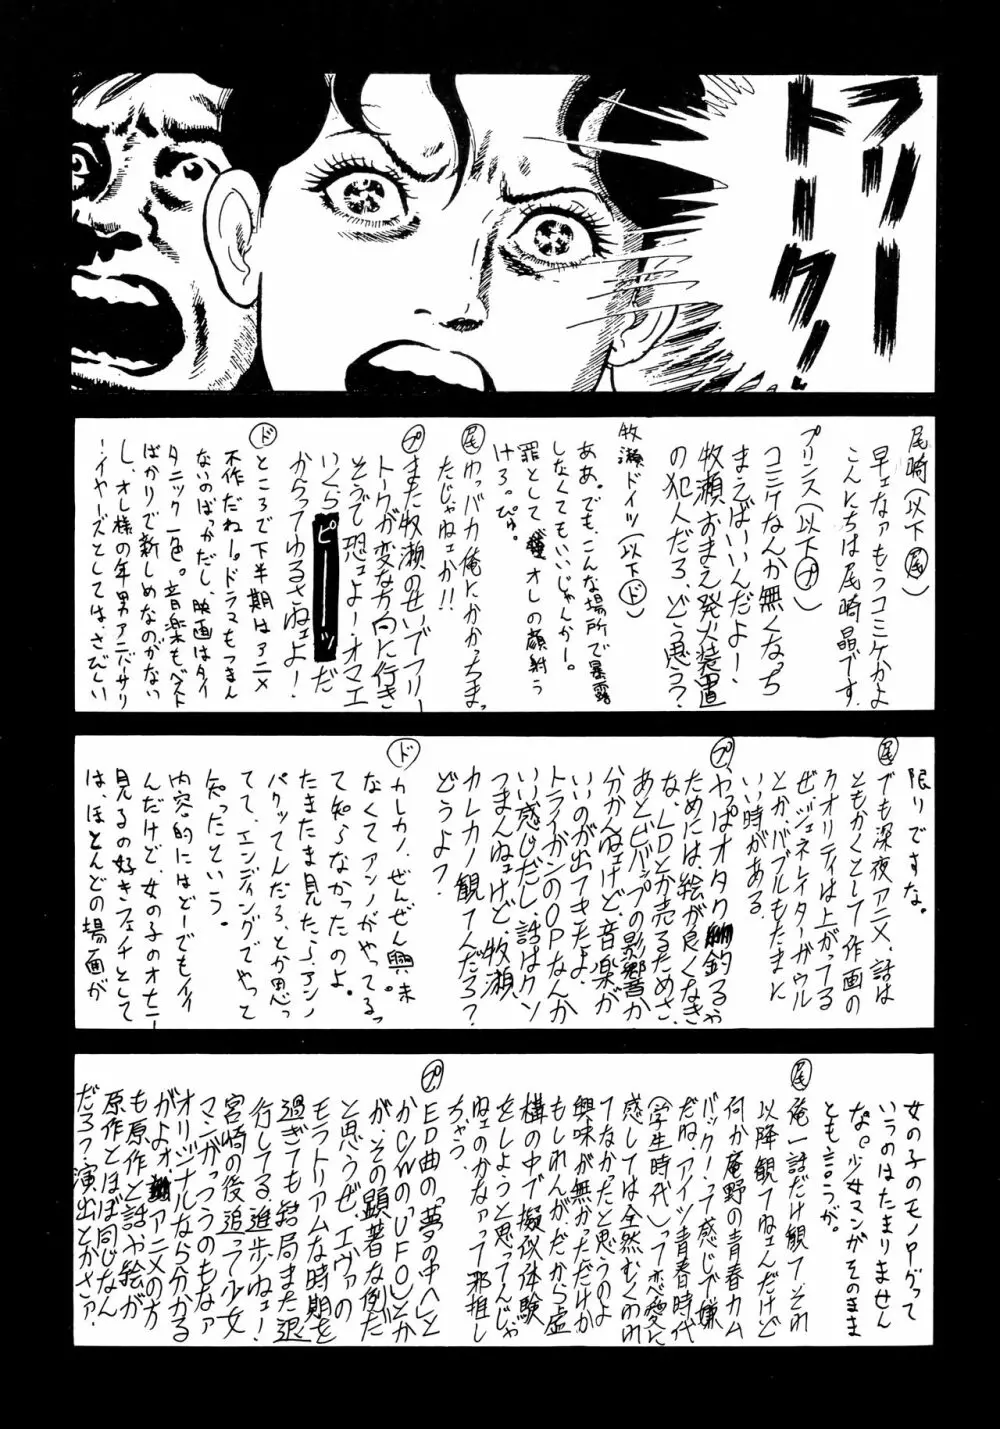 フリー
トーク!
尾崎(以下尾)
早ェなァもうコミケかよ
こんにちは尾崎晶です。
プリンス(以下プ)
コミケなんか無くなっち
まえばいいんだよ!
牧瀬おまえ発火装置
の犯人だろ、どう思う?
牧瀬ドイツ(以下ド)
ああ。でも、こんな場所で暴露
しなくてもいいじゃんかー。
罪として オレの顔射う
けろっぴゅ。
尾 わっバカ俺にかかっちま
たじゃねェか!!
プ また牧瀬のせいでフリー
トークが変な方向に行き
そうで恐ェよー・オマエ
いくらピーッだ
からってゆるさねェよ!
ド ところで下半期はアニメ
不作だねー。ドラマもつまん
ないのばっかだし、映画はタイ
タニック一色。音楽もベスト
ばかりで新しめなのがない
し、オレ様の年男アニバーサリ
ー・イヤーズとしては、さびしい
限りですな。
尾 でも深夜アニメ、話は
ともかくとして作画の
クオリティは上がってる
ぜ。ジェネレイターガウル
とか、バブルもたまに
いい時がある。
プ やっぱオタク釣るゃ
ためには絵が良くなき
な、LDとか売るためさ、
あとビバップの影響か
分かんねェけど、音楽が
いいのが出てきたよ、
トライガンのOPなんか
いい感じだし、話はクソ
つまんねェけど、牧瀬、
カレカノ観てんだろ?
どうよ?
ド カレカノ、ぜんぜん興味
なくてアンノがやってるっ
て知らなかったのよ。
たまたま見たら、アンノ
パクッてんだろ、とか思っ
てて、エンディングでやっと
知ったという。
内容的にはどーでもイイ
んだけど、女の子のオセニー
見るの好きフェチとして
は、ほとんどの場面が
女の子のモノローグって
いうのはたまりません
な。少女マンガそのまま
とも言うが。
尾 俺一話だけ観て、それ
以降観てねェんだけど
何か庵野の青春カム
バック!って感じで嫌
だね、アイツ青春時代
(学生時代)って恋愛に
感しては全然むくわれ
てなかたと思うのよ
興味が無かっただけか
もしれんが、だから虚
構の中で擬似体験
をしようと思ってんじゃ
ねェのかなァって邪推し
ちゃう。
プ ED曲の「夢の中へ」と
かCWの「UFO」とか
が、その顕著な例だ
と思うぜ、エヴァの
モラトリアムな時期を
過ぎても結局また退
行してる、進歩ねェ!
宮崎の後追って少女
マンガっつうのもなァ
オリジナルなら分かる
がよォ、アニメの方
も原作と話や絵が
原作とほぼ同じなん
だろ?演出とかさァ、